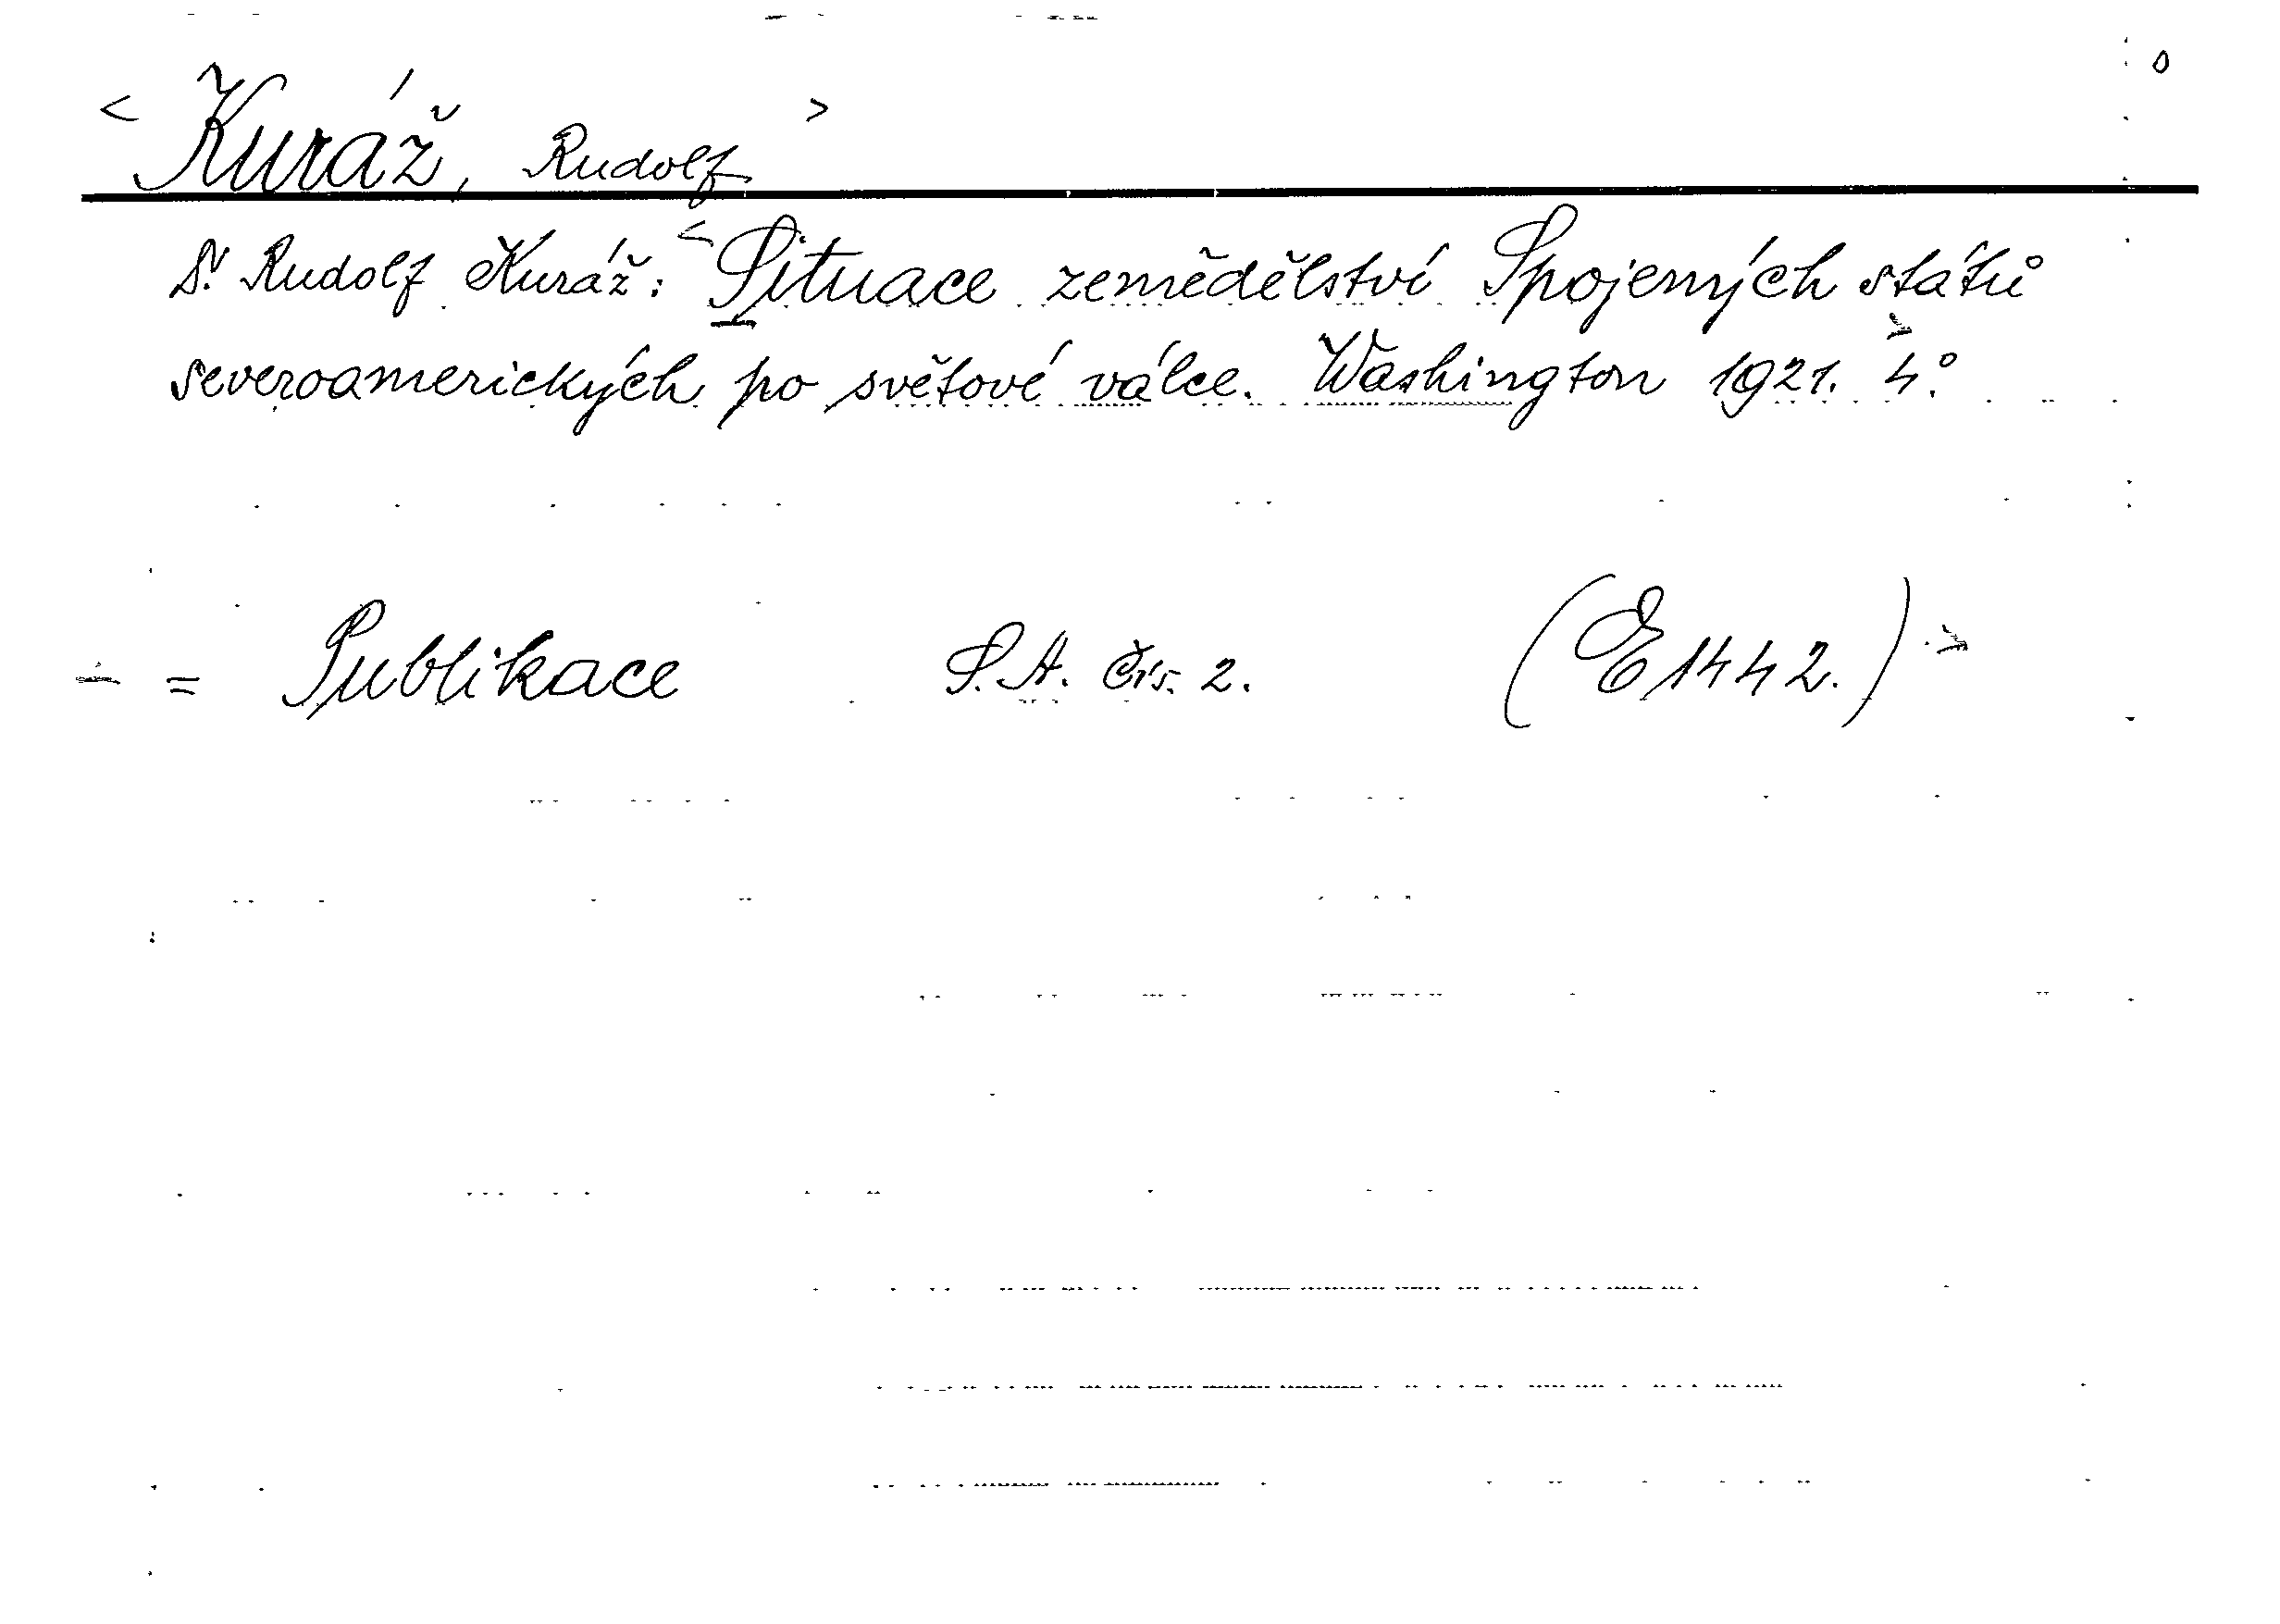 < Kuráž, Rudolf >
Dr. Rudolf Kuráž: <Situace zemědělství Spojených států
severoamerických po světové válce. Washington 1921. > 4°.
= Publikace S. A. Čís. 2. (E 1442.) >